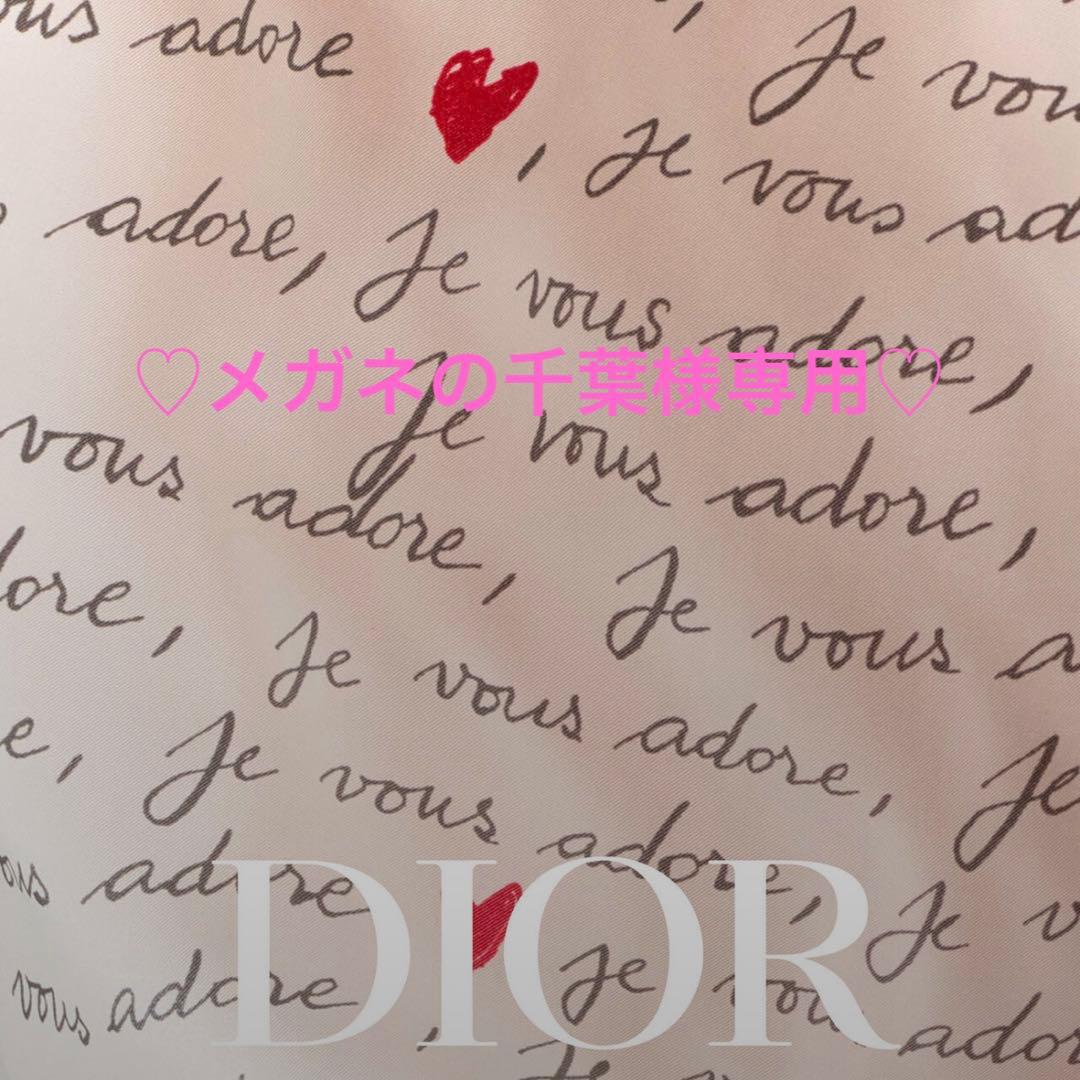 ous adore
Je vous
, Je vous ad
adore, Je vous adore,
♡メガネの千葉様専用♡
vous adore, Je vous adore,
dore, Je vous adore, Je vous a
e, Je vous adore, Je
ous adore, Je v
vous adore, Je vous adore
DIOR
Je